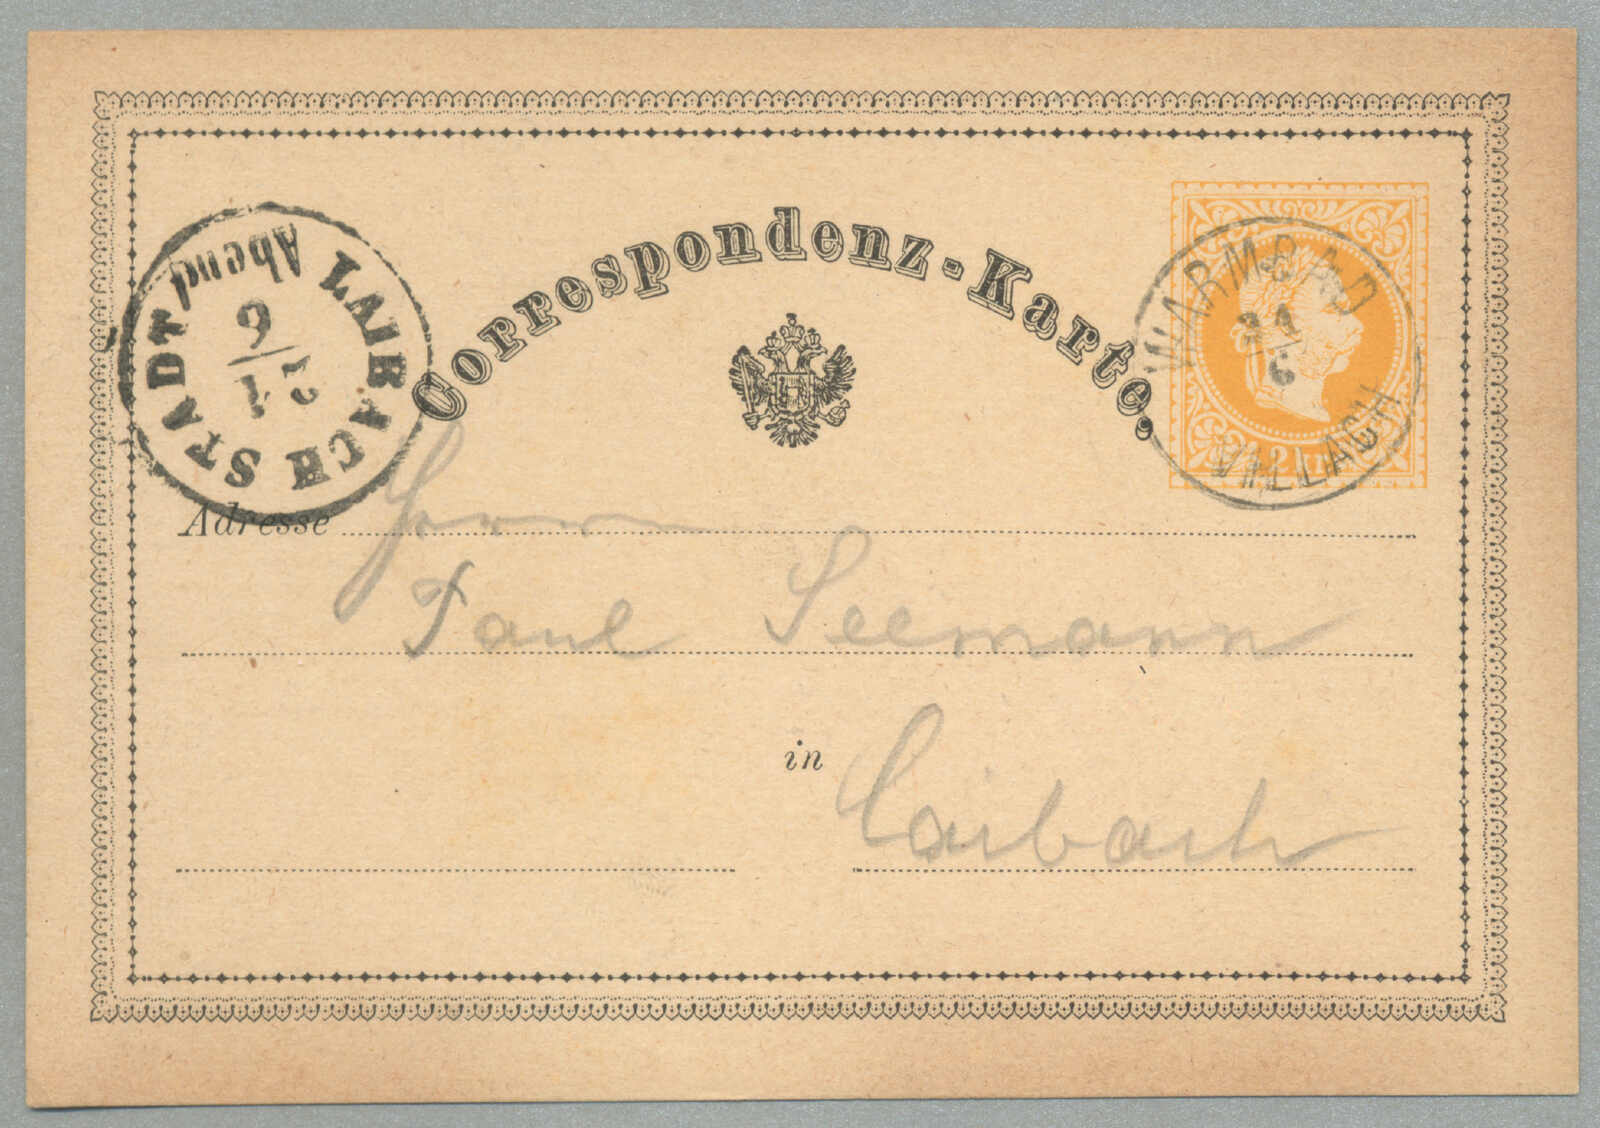 Correspondenz-Karte.
LAIBACH STADT
21
6
Abend
WARMBAD
21
6
VILLACH
2 kr.
Adresse Herrn
Paul Seemann
in Laibach